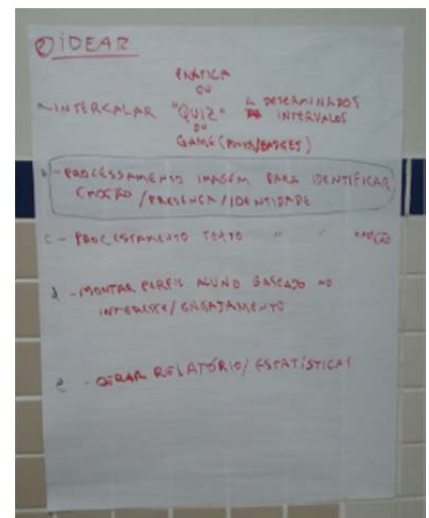 ② IDEAR
PRÁTICA
OU
a - INTERCALAR "QUIZ" A DETERMINADOS INTERVALOS
OU
GAME (PINS/BADGES)
b - PROCESSAMENTO IMAGEM PARA IDENTIFICAR
EMOÇÃO / PRESENÇA / IDENTIDADE
C - PROCESSAMENTO TEXTO " " EMOÇÃO
d - MONTAR PERFIL ALUNO BASEADO NO
INTERESSE / ENGAJAMENTO
e - GERAR RELATÓRIO / ESTATÍSTICAS